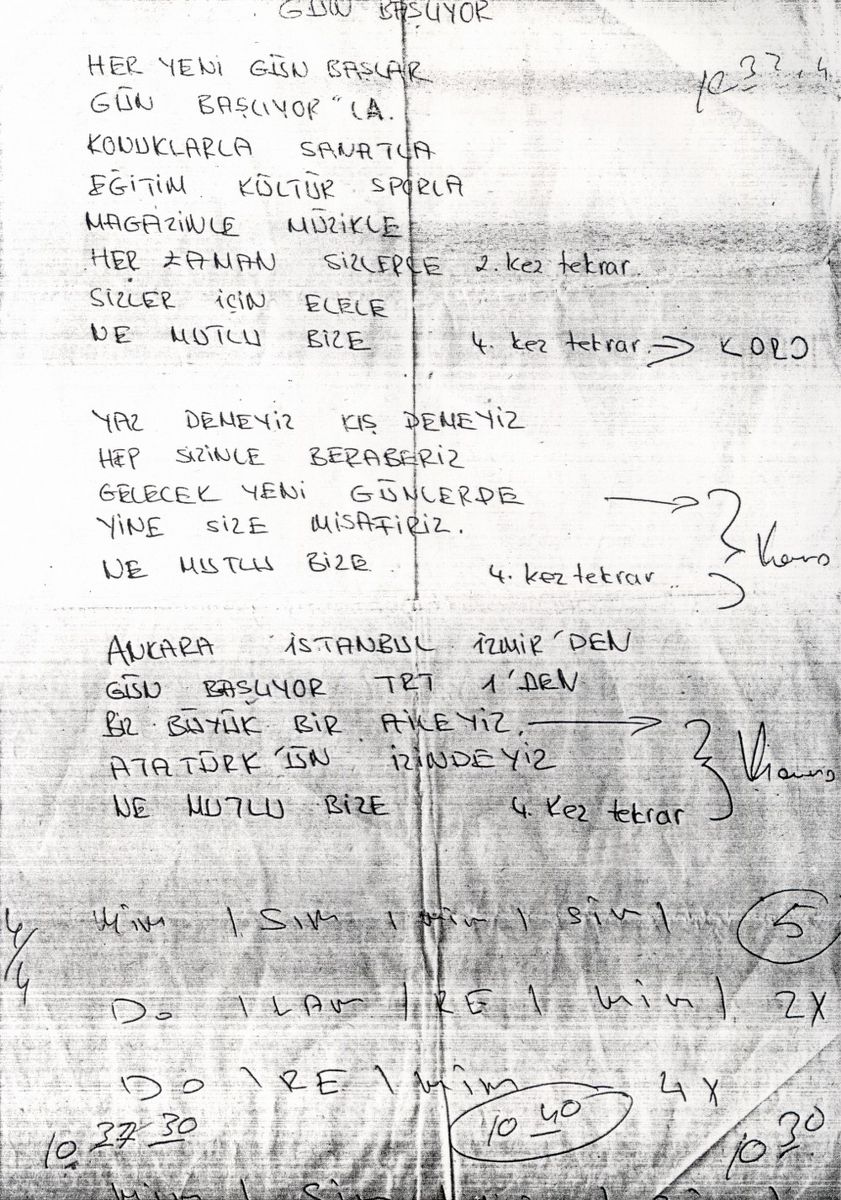 GÜN BAŞLIYOR
HER YENİ GÜN BAŞLAR
GÜN BAŞLIYOR "LA.
KONUKLARLA SANATLA
EĞİTİM KÜLTÜR SPORLA
MAGAZİNLE MÜZİKLE
HER ZAMAN SİZLERLE 2. kez tekrar.
SİZLER İÇİN ELELE
NE MUTLU BİZE 4. kez tekrar. → KORO
YAZ DEMEYİZ KIŞ DEMEYİZ
HEP SİZİNLE BERABERİZ
GELECEK YENİ GÜNLERDE →
YİNE SİZE MİSAFİRİZ.
NE MUTLU BİZE 4. kez tekrar
ANKARA İSTANBUL İZMİR'DEN
GÜN BAŞLIYOR TRT 1'DEN
BİZ BÜYÜK BİR AİLEYİZ. →
ATATÜRK'ÜN İZİNDEYİZ
NE MUTLU BİZE 4. Kez tekrar
4/4 Mim | Sim | mim | sim | 5
Do | LAm | RE | mim | 2X
DO | RE | mim 4X
10 37 30 10 40 10 30